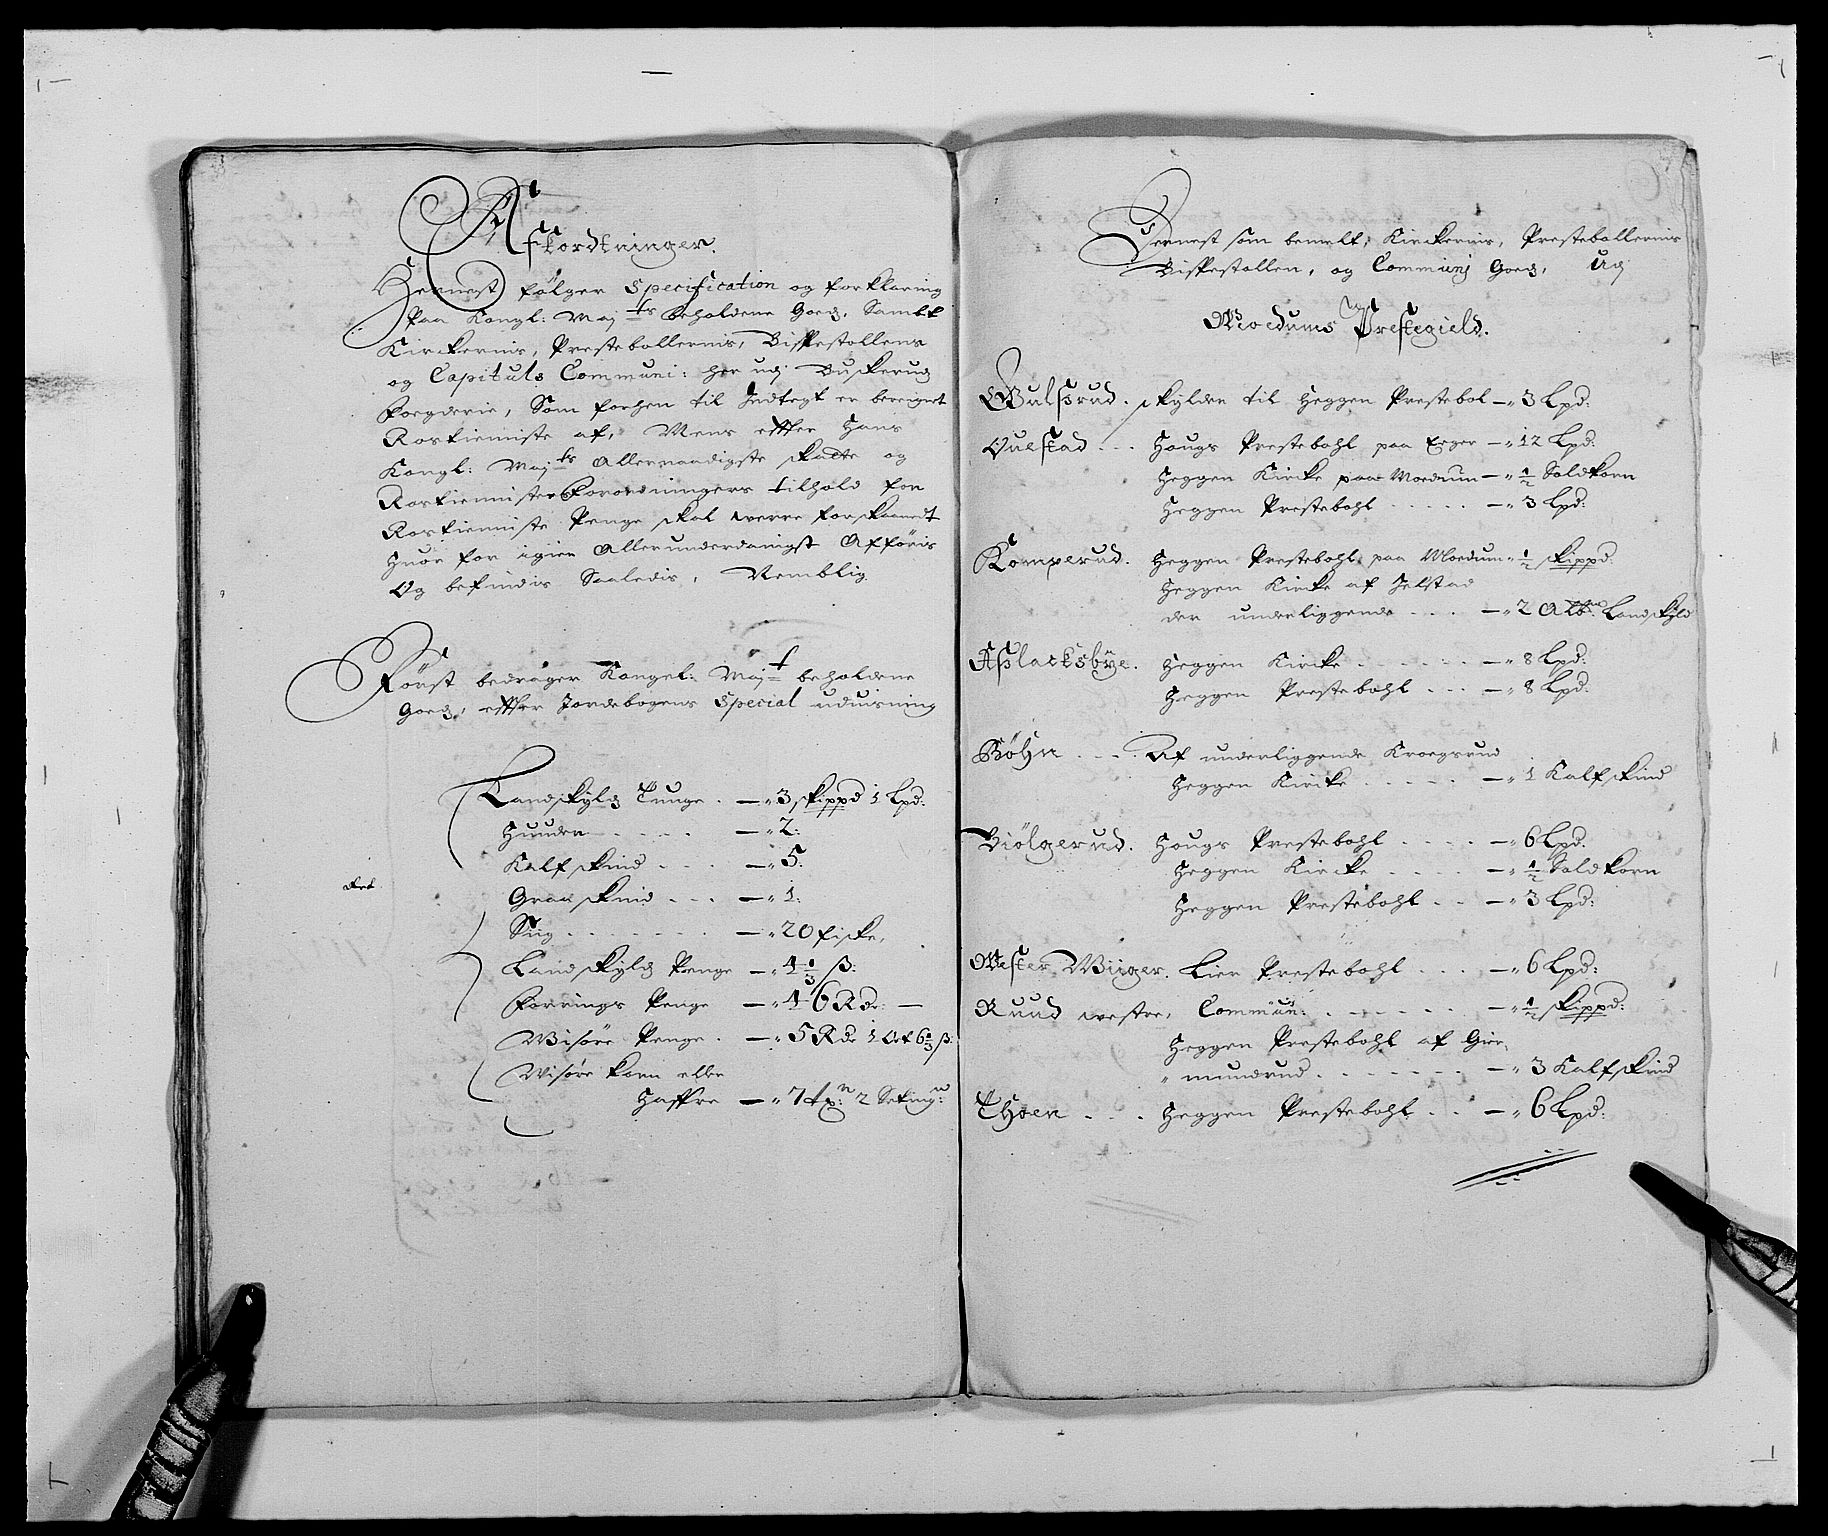 Afkordtninger.
Hernest følger Specification og forklaring
Paa Kongl: Maj:ts beholdene Goeds, Sambt
Kirckernis, Prestebollernis, Bispestollens
og Capituls Communi: her udj Buskerud
Foegderie, Som forhen til Indtegt er bereignet
Rostieniste af, Mens effter Hans
Kongl: Maj:ts Allernaadigste skatte og
Rostienister Forordningers tilhold for
Rostieniste Penge skal werre forskaanedt
Huor for igien Allerunderdanigst Afføris
Og befindis Saaledis, Nemblig
Først bedrager Kongel: Maj:ts beholdene
Goeds, effter Jordebogens Special uduisning
Landskyld Tunge . — 3 skippd 1 Lpd:
Huuder . . . . — 2:
Kalfskind . . . — 5.
Graaskind . . . — 1:
Siig . . . . . . — 20 fiske,
Landskyld Penge — 4 1/3 ß:
Forrings Penge — 46 Rdr: —
Wisøre Penge . — 5 Rdr 1 Ort 6 2/3 ß:
Wisøre korn eller
Haffre — 7 tr:n 2 Setting:r
Dernest som bemelt, Kirckernis, Prestebollernis
Bispestollen, og Communj Goeds, Udj
Moedums Prestegield.
Gulsrud. skylder til Heggen Prestebol — 3 Lpd:
Ouestad . . . Hougs Prestebohl paa Eeger — 12 Lpd:
Heggen Kircke paa Moedum — 1/2 Soldkorn
Heggen Prestebohl . . . . . — 3 Lpd:
Komperud. Heggen Prestebohl paa Moedum 1/2 skippd:
Heggen Kircke af Jelstad
der underliggende . . . . — 2 Alb: Landskyld
Aslacksbye. Heggen Kircke . . . . . . — 8 Lpd:
Heggen Prestebohl . . . — 8 Lpd:
Böhn . . . . Af underliggende Kroegsrud
Heggen Kircke . . . . . — 1 Kalfskind
Biölgerud. Hougs Prestebohl . . . . — 6 Lpd.
Heggen Kircke . . . . — 1/2 Soldkorn
Heggen Prestebohl . . — 3 Lpd:
Wester Wiiger. Lier Prestebohl . . . — 6 Lpd:
Ruud westre, Commun: . . . . . . — 1/2 skippd:
Heggen Prestebohl af Gier-
mundrud . . . . . . . — 3 Kalfskind
Thoen . . . Heggen Prestebohl . . — 6 Lpd: